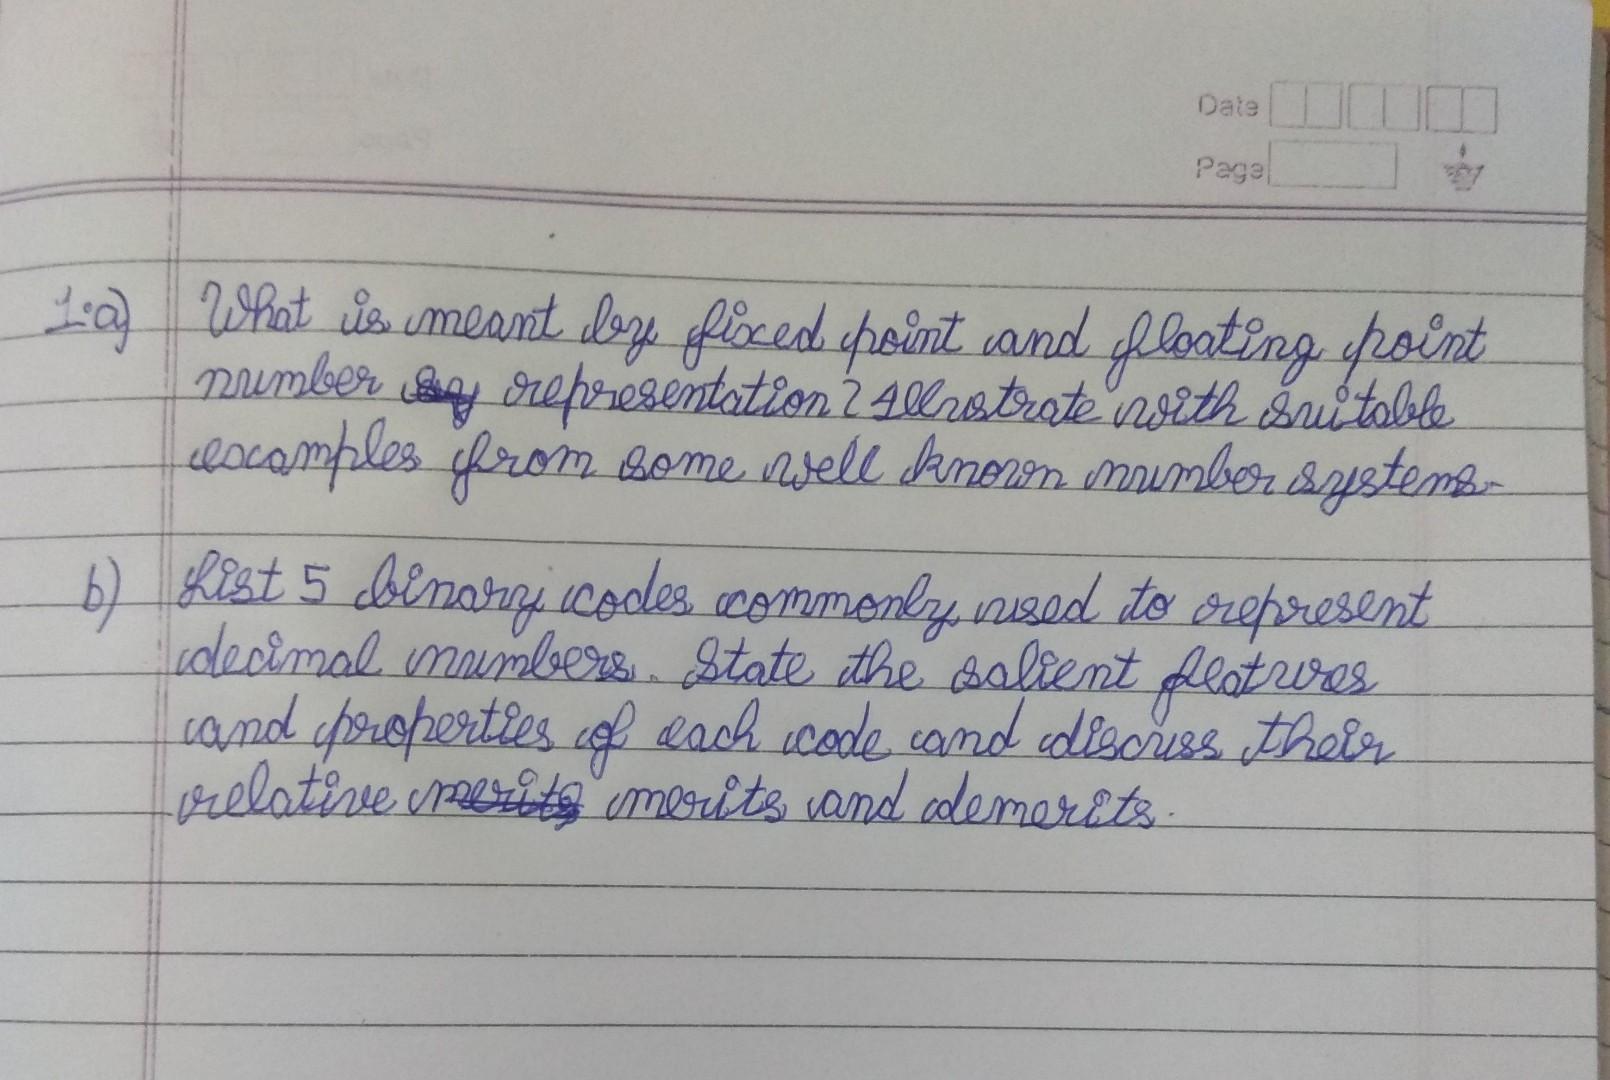 Date
Page
1.a) What is meant by fixed point and floating point
number representation? Illustrate with suitable
examples from some well known number systems.
b) List 5 binary codes commonly used to represent
decimal numbers. State the salient features
and properties of each code and discuss their
relative merits merits and demerits.